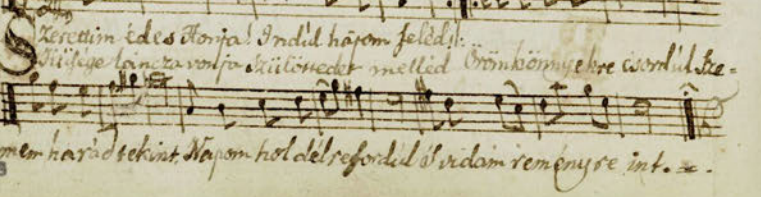 Szerettim édes Honja! Indúl hajóm feléd!:
Hűsége láncza vonja Szülöttedet melléd Örömkönnyekre csordúl Sze=
mem ha rád tekint. Napom hol délre fordúl 's vidám reményre int.